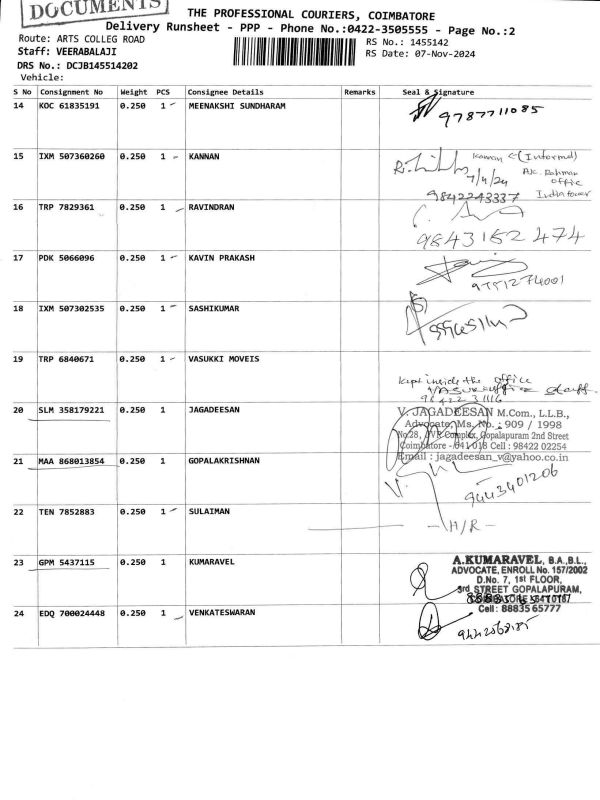 DOCUMENTS
THE PROFESSIONAL COURIERS, COIMBATORE
Delivery Runsheet - PPP - Phone No.:0422-3505555 - Page No.:2
Route: ARTS COLLEG ROAD
RS No.: 1455142
Staff: VEERABALAJI
RS Date: 07-Nov-2024
DRS No.: DCJB145514202
Vehicle:
S No Consignment No Weight PCS Consignee Details Remarks Seal & Signature
14 KOC 61835191 0.250 1 MEENAKSHI SUNDHARAM
9787711085
15 IXM 507360260 0.250 1 KANNAN
Kannan (Informed)
7/4/24 AK. Rahman
office
9842243337 India tower
16 TRP 7829361 0.250 1 RAVINDRAN
9843162474
17 PDK 5066096 0.250 1 KAVIN PRAKASH
9751274001
18 IXM 507302535 0.250 1 SASHIKUMAR
19 TRP 6840671 0.250 1 VASUKKI MOVEIS
Kept inside the office
staff
20 SLM 358179221 0.250 1 JAGADEESAN
V. JAGADEESAN M.Com., L.L.B.,
Advocate, Ms. No. : 909 / 1998
No.28, JVR Complex, Gopalapuram 2nd Street
Coimbatore - 641 018 Cell : 98422 02254
Email : jagadeesan_v@yahoo.co.in
21 MAA 868013854 0.250 1 GOPALAKRISHNAN
9443401206
22 TEN 7852883 0.250 1 SULAIMAN
- H/R -
23 GPM 5437115 0.250 1 KUMARAVEL
A.KUMARAVEL, B.A.,B.L.,
ADVOCATE, ENROLL No. 157/2002
D.No. 7, 1st FLOOR,
3rd STREET GOPALAPURAM,
Cell: 88835 65777
24 EDQ 700024448 0.250 1 VENKATESWARAN